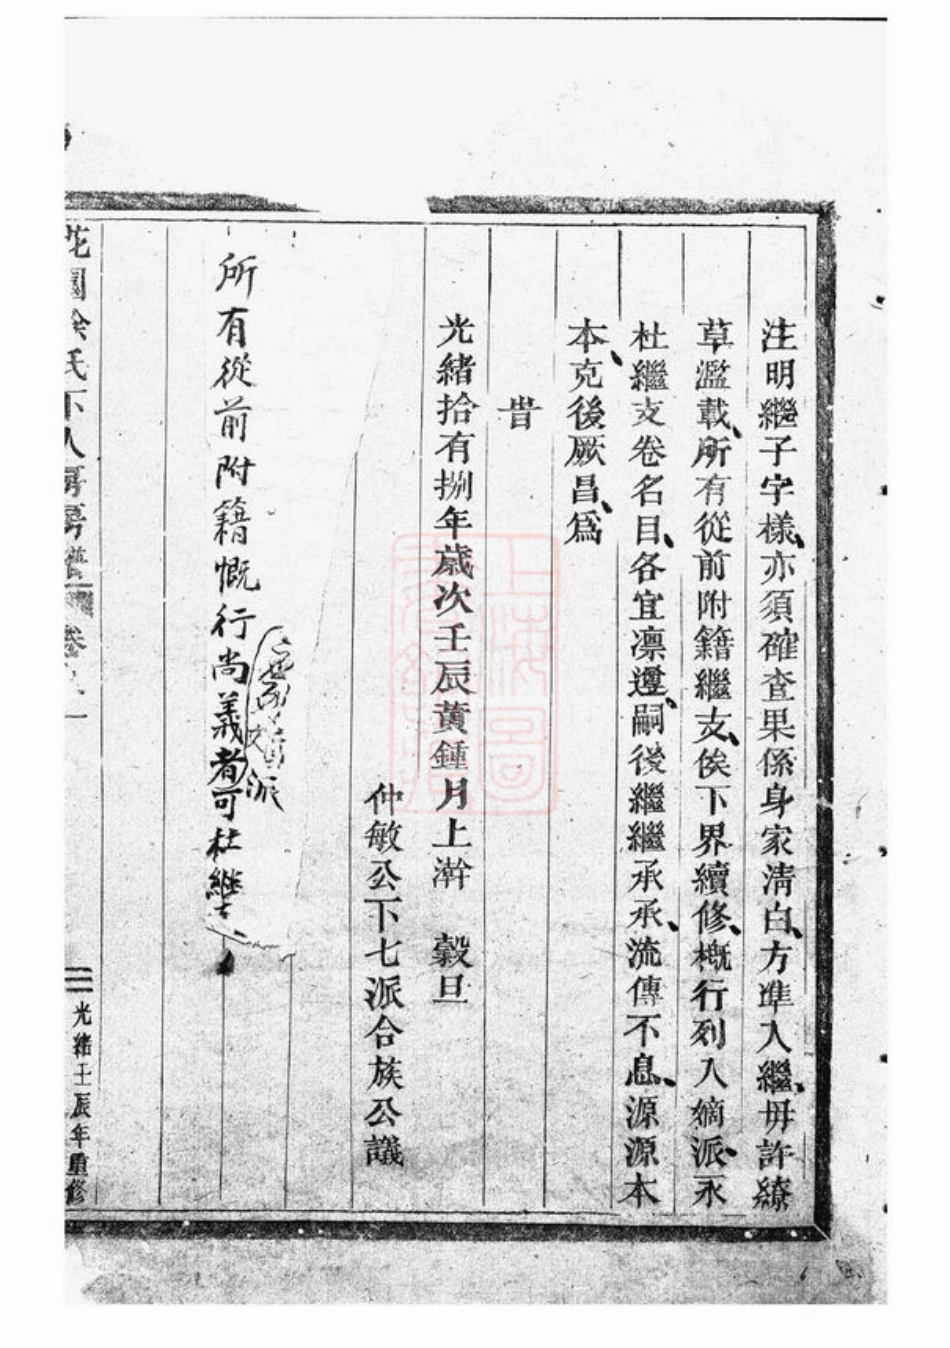 注明繼子字樣、亦須確查果係身家清白、方準入繼、毋許繚
草濫載、所有從前附籍繼支、俟下界續修、概行列入嫡派、永
杜繼支卷名目、各宜凛遵、嗣後繼繼承承、流傳不息、源源本
本、克後厥昌、爲
旹
光緒拾有捌年歲次壬辰黃鍾月上澣 穀旦
仲敏公下七派合族公議
派
所有從前附籍慨行尚義者可杜繼
花園徐氏下八房房譜 卷之一
光緒壬辰年重修
上海圖書館藏